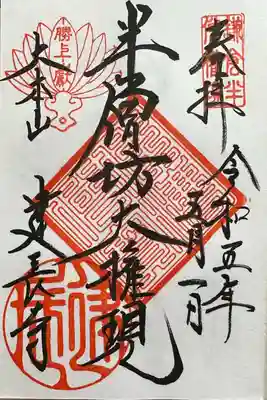 奉拝
令和五年
五月一日
半僧坊大権現
勝上嶽
大本山
建長寺